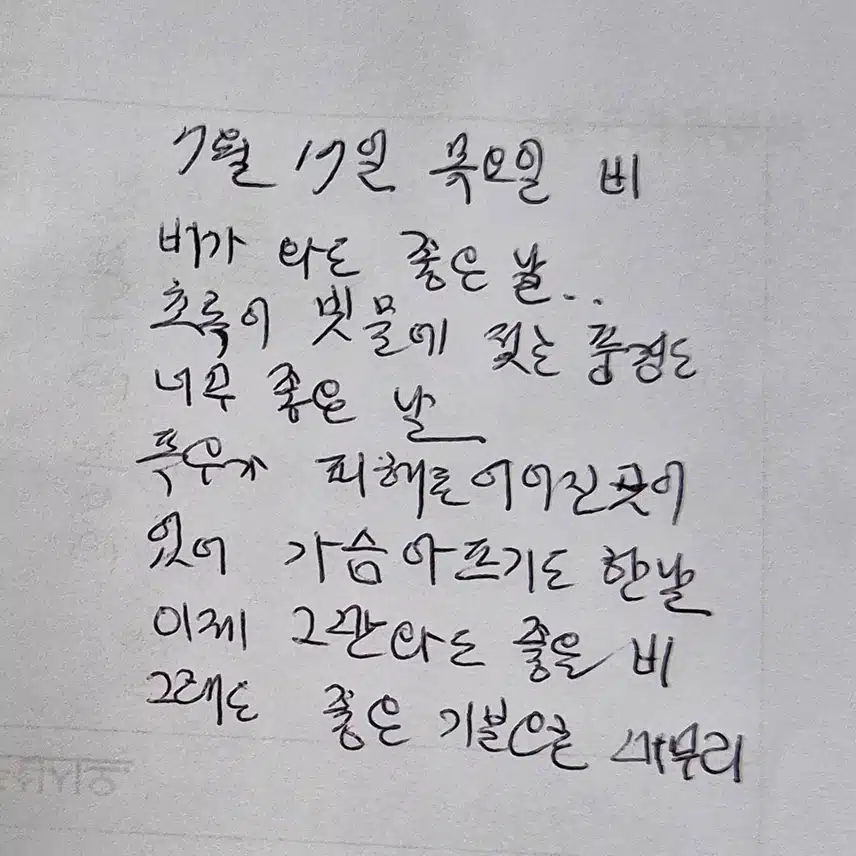 7월 17일 목요일 비
비가 와도 좋은 날..
초록이 빗물에 젖는 풍경도
너무 좋은 날
폭우가 피해로 이어진 곳이
있어 가슴 아프기도 한 날
이제 그만 와도 좋을 비
그래도 좋은 기분으로 마무리